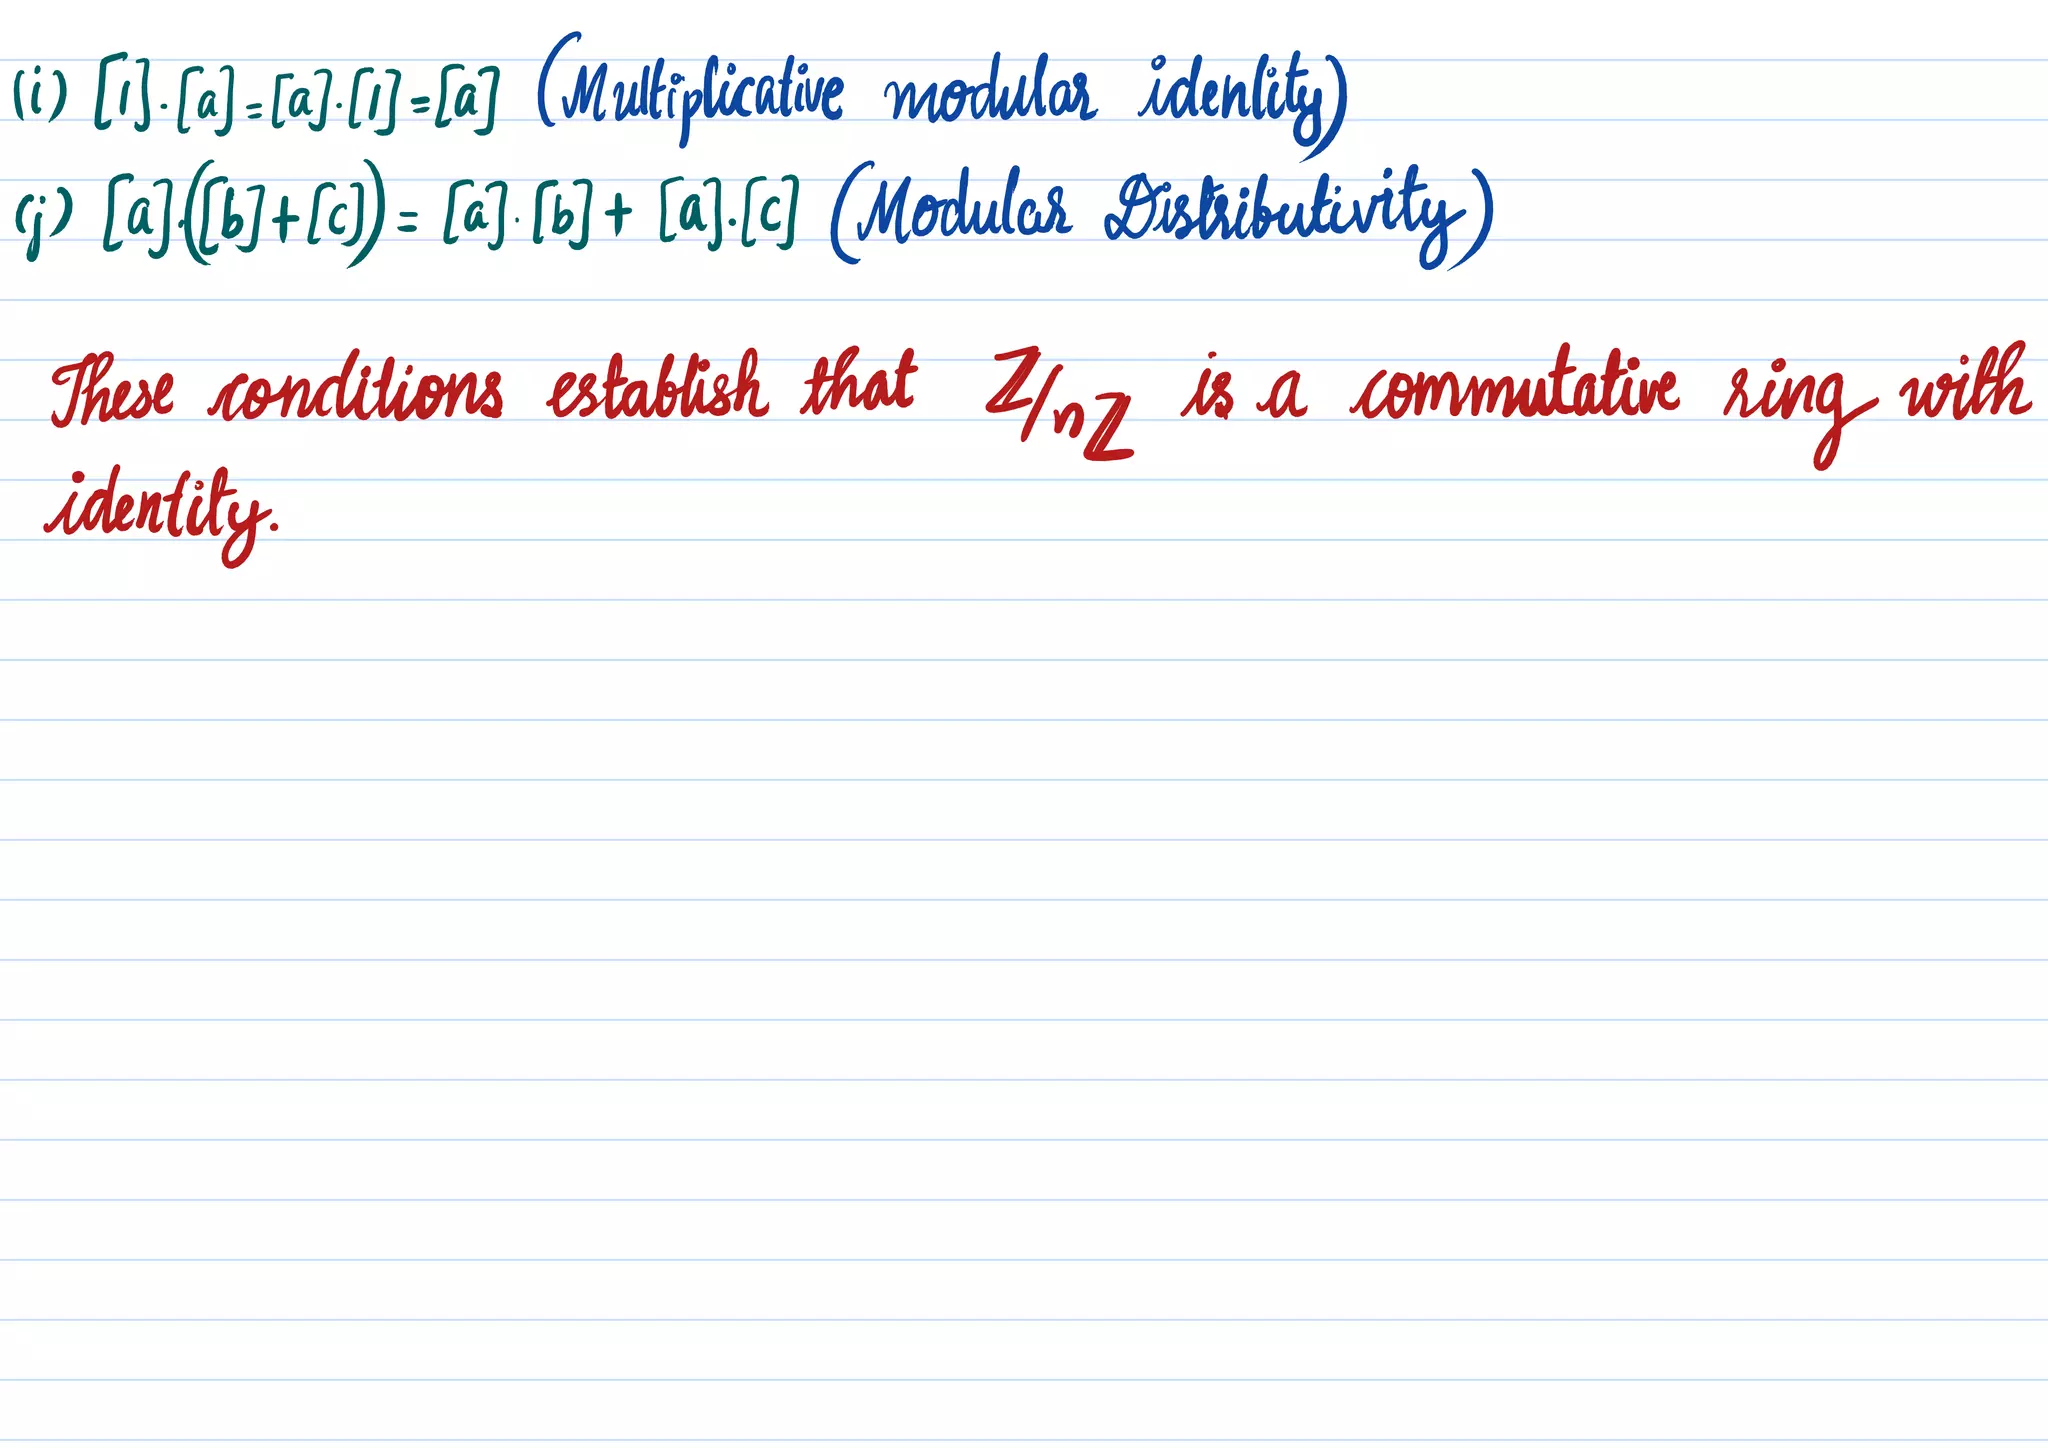 (i) [1]·[a]=[a]·[1]=[a] (Multiplicative modular identity)
(j) [a]·([b]+[c]) = [a]·[b] + [a]·[c] (Modular Distributivity)
These conditions establish that ℤ/nℤ is a commutative ring with
identity.